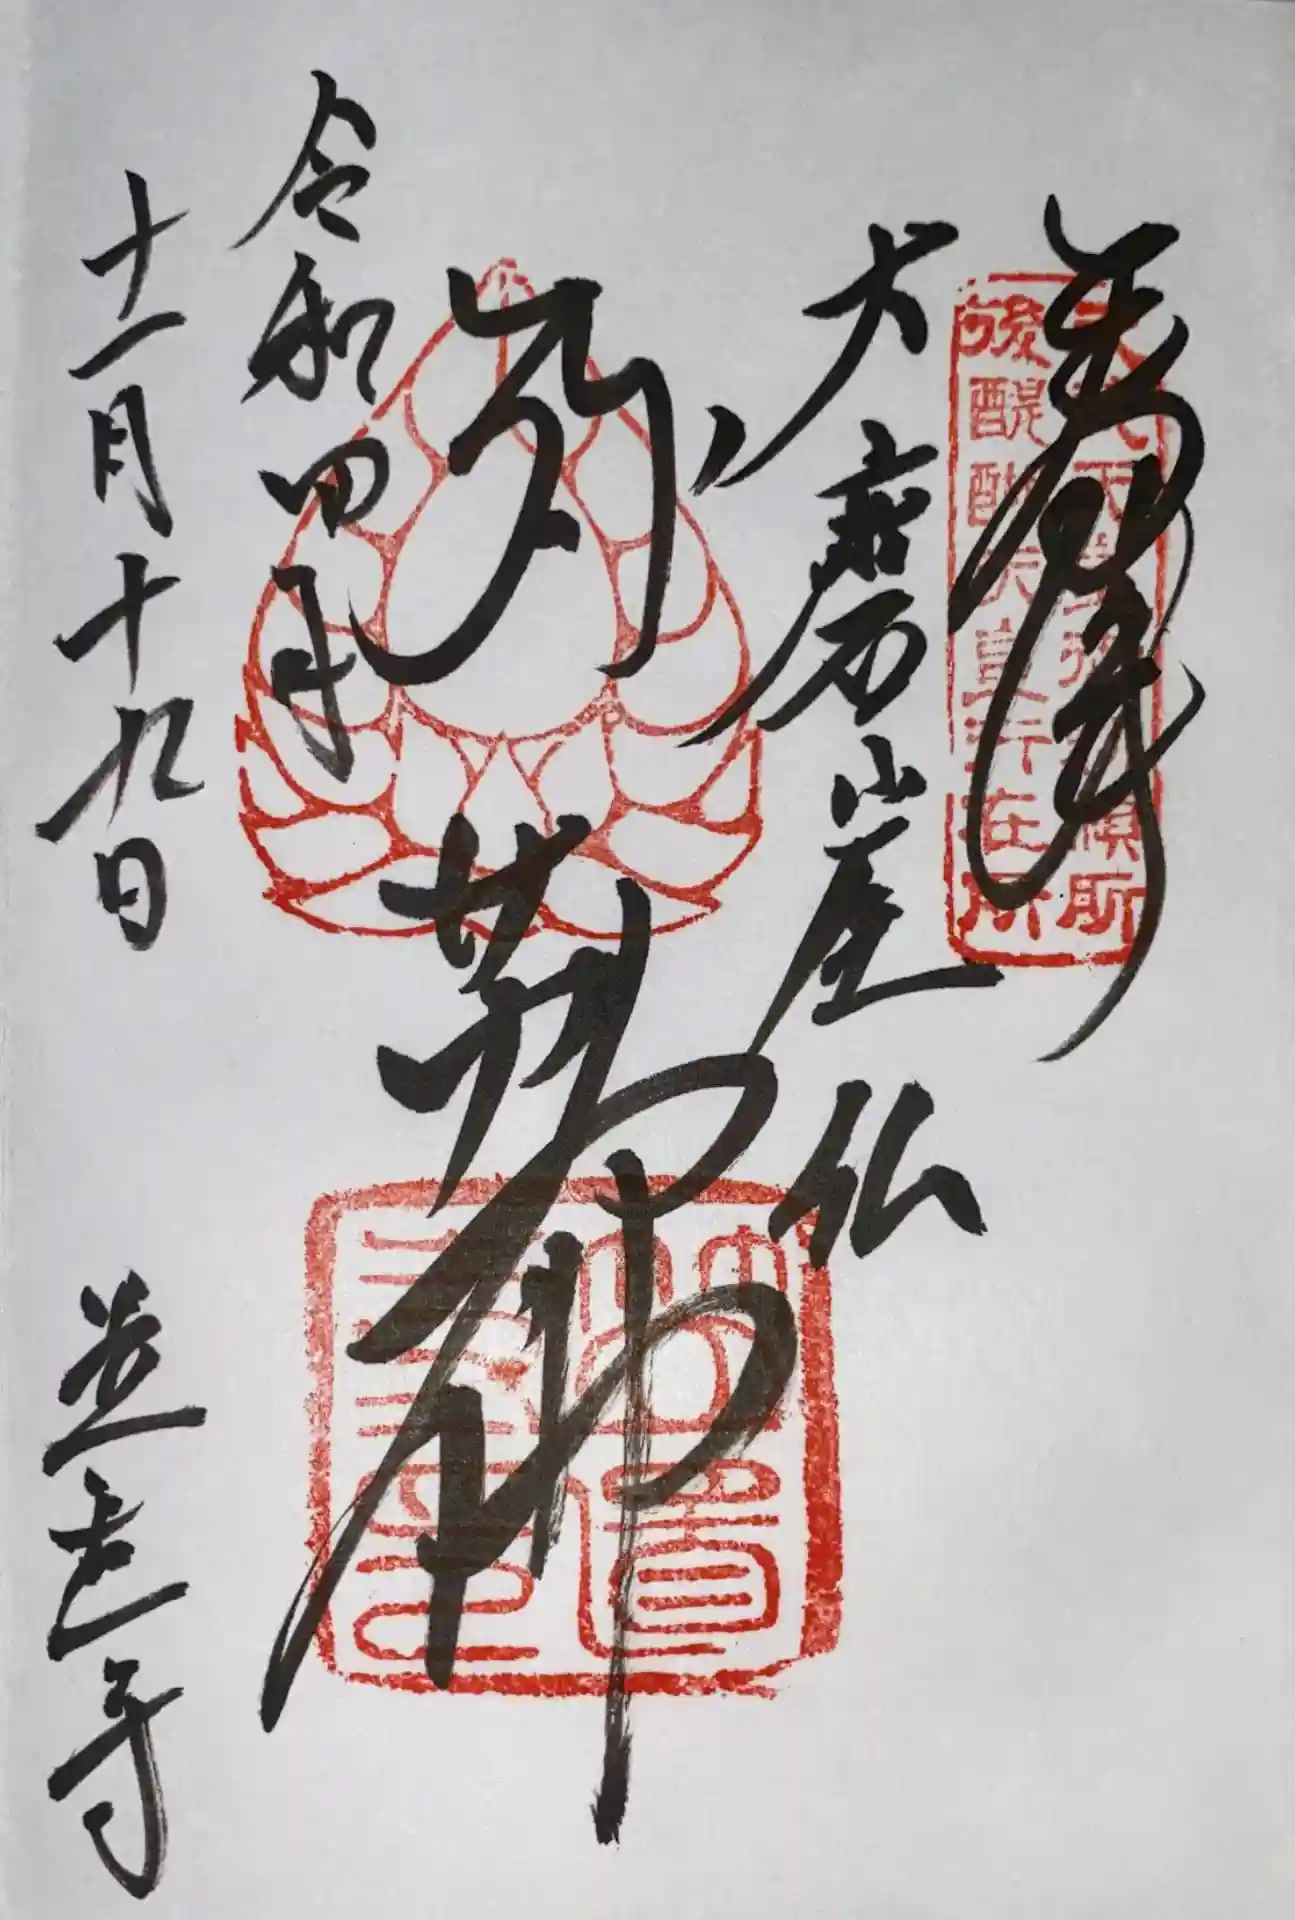 奉拝
後醍醐天皇行在所
大磨崖仏
弥勒佛
令和四年
十一月十九日
笠置寺